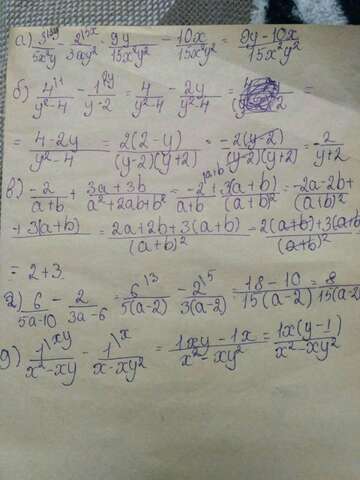 а) 3\3y/5x²y - 2\5x/3xy² = 9y/15x²y² - 10x/15x²y² = 9y-10x/15x²y²
б) 4\1/y²-4 - 1\2y/y-2 = 4/y²-4 - 2y/y²-4 =
= 4-2y/y²-4 = 2(2-y)/(y-2)(y+2) = -2(y-2)/(y-2)(y+2) = -2/y+2
в) -2/a+b + 3a+3b/a²+2ab+b² = -2\a+b/a+b + 3(a+b)/(a+b)² = -2a-2b+/(a+b)²
+3(a+b) = 2a+2b+3(a+b)/(a+b)² = 2(a+b)+3(a+b)/(a+b)²
= 2+3
г) 6/5a-10 - 2/3a-6 = 6\3/5(a-2) - 2\5/3(a-2) = 18-10/15(a-2) = 8/15(a-2)
д) 1\xy/x²-xy - 1\x/x-xy² = 1xy-1x/x²-xy² = 1x(y-1)/x²-xy²